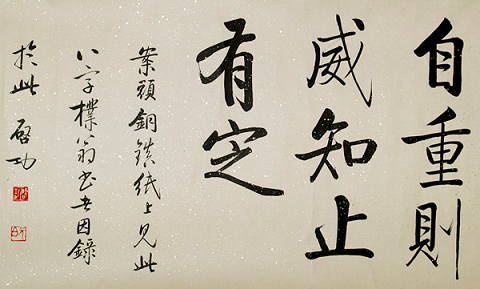 自重則
威知止
有定
案頭銅鎮紙上見此
八字樸翁書因錄
於此 啓功